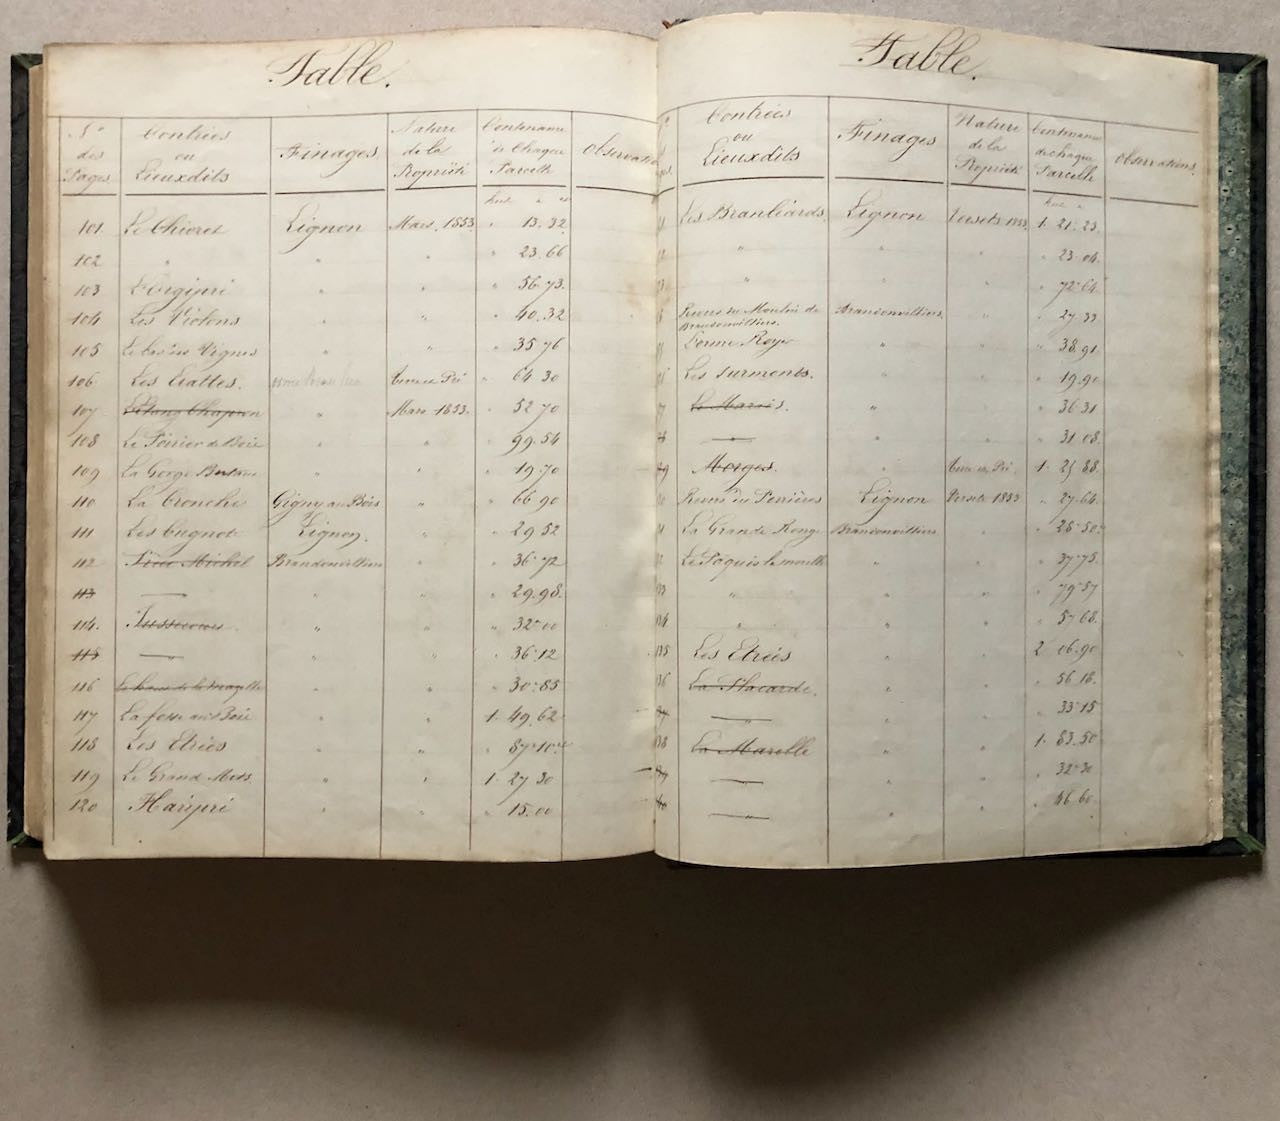 Table.
Nos des Pages
Contrées ou Lieuxdits
Finages
Nature de la Propriété
Contenance de Chaque Parcelle
Observations
101 Le Chieret Lignon Mars 1853 " 13.32
102 " " " " 23.66
103 " " " 56.73
104 Les Violons " " " 40.32
105 Vignes " " " 35.76
106 Les Liattes. Terre et Pré " 64.30
107 L'Etang Chapron " Mars 1853. " 52.70
108 Le Poirier de Bois " " " 99.54
109 La Gorge " " " 19.70
110 La Cronche Gigny aux Bois " " 66.90
111 Les Cugnot Lignon. " " 29.52
112 Michel Brandonvilliers " " 36.72
113 — " " " 29.98.
114. " " " 32.00
115 — " " " 36.12
116 " " " 30.85
117 La fosse au Bois " " 1. 49.62
118 Les Etrées " " " 87.10
119 Le Grand Mets. " " 1. 27.30
120 Haripré " " " 15.00
Table.
Contrées ou Lieuxdits
Finages
Nature de la Propriété
Contenance de chaque Parcelle
Observations.
Les Branliards. Lignon Versets 1853. 1. 21.23.
" " " " 23.04.
" " " " 72.64.
Revers du Moulin de Brandonvilliers. Brandonvilliers. " " 27.33
" " " 38.91
Les Surments. " " " 19.90
Le Marais. " " " 36.31
— " " " 31.08.
Morges. " Terre et Pré. 1. 25.88.
Revers des Perrières Lignon Versets 1853 " 27.64.
La Grande Brandonvilliers " " 26.50.
Le Paquis " " " 37.75.
" " " " 79.57
134 " " " " 57.68.
135 Les Etrées " " 2. 06.90
136 La Placarde. " " " 56.16.
— " " " 33.15
138 La Marelle " " 1. 83.50
— " " " 32.30
— " " " 46.60